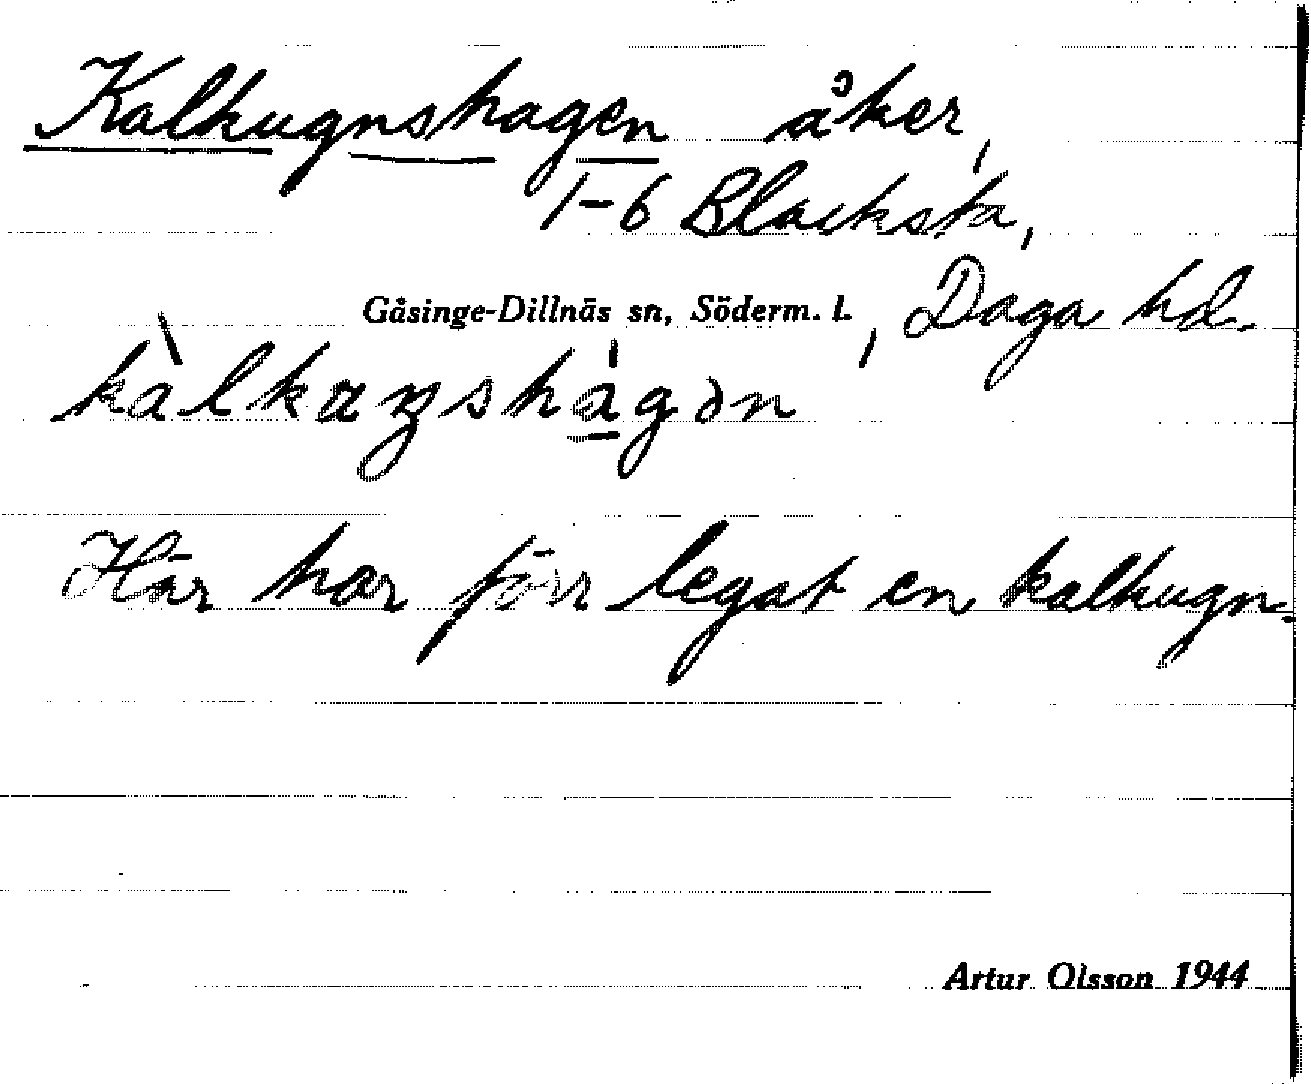 Kalkugnshagen åker,
1-6 Blacksta,
Gåsinge-Dillnäs sn, Söderm. l., Daga hd.
Här har förr legat en kalkugn.
Artur Olsson 1944